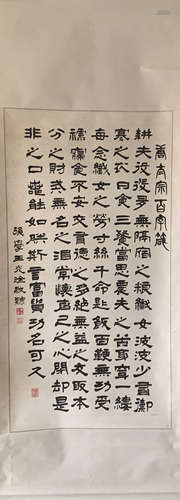 唐太宗百字箴
耕夫役役多無隔宿之糧織女波波少有禦
寒之衣日食三餐當思農夫之苦身穿一縷
每念織女之勞寸絲千命匙飯百鞭無功受
祿寢食不安交有德之朋絕無益之友取本
分之財戒無名之酒常懷克己之心閉卻是
非之口若能如朕斯言富貴功名可久